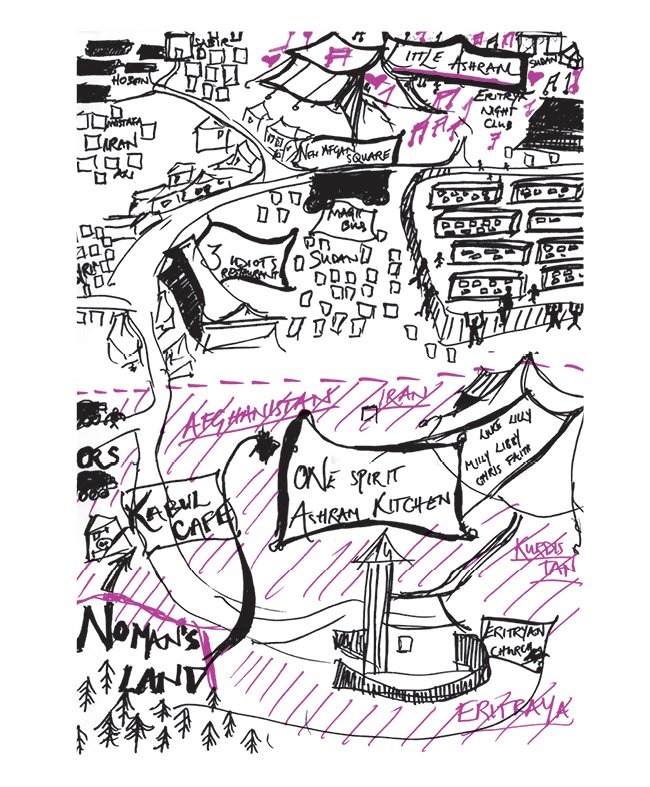 SABIR
LITTLE ASHRAM
SUDAN
HOSAIN
ERITRYA
NIGHT
CLUB
MUSTAFA
IRAN
NEW AFGAN
SQUARE
MAGIC
BUS
3 IDIOTS
RESTAURANT
SUDAN
AFGHANISTAN
IRAN
LUKE LILLY
MILLY LIBBY
CHRIS FAITH
ORS
ONE SPIRIT
ASHRAM KITCHEN
KABUL
CAFE
KURDIS
TAN
NOMAN'S
LAND
ERITRYAN
CHURCH
ERITRAYA